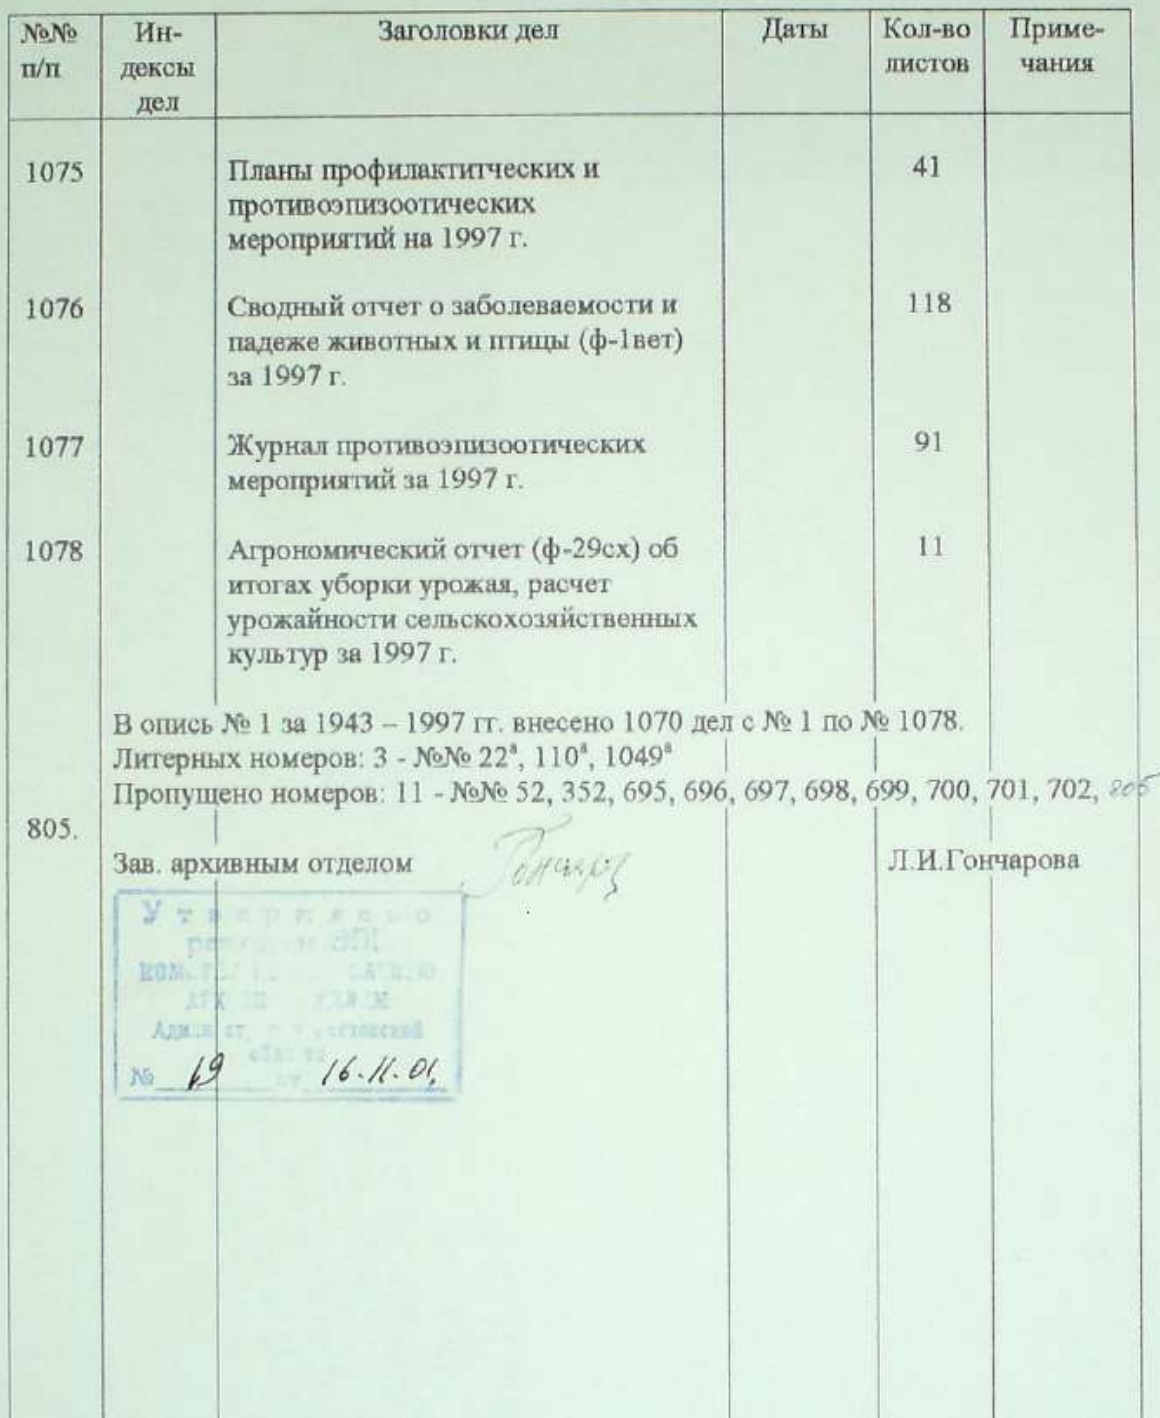 №№ Ин- Заголовки дел Даты Кол-во Приме-
п/п дексы листов чания
дел
1075 Планы профилактитческих и 41
противоэпизоотических
мероприятий на 1997 г.
1076 Сводный отчет о заболеваемости и 118
падеже животных и птицы (ф-1вет)
за 1997 г.
1077 Журнал противоэпизоотических 91
мероприятий за 1997 г.
1078 Агрономический отчет (ф-29сх) об 11
итогах уборки урожая, расчет
урожайности сельскохозяйственных
культур за 1997 г.
В опись № 1 за 1943 – 1997 гг. внесено 1070 дел с № 1 по № 1078.
Литерных номеров: 3 - №№ 22ª, 110ª, 1049ª
Пропущено номеров: 11 - №№ 52, 352, 695, 696, 697, 698, 699, 700, 701, 702, 805
805.
Зав. архивным отделом Л.И.Гончарова
Утверждено
№ 19 от 16.11.01.